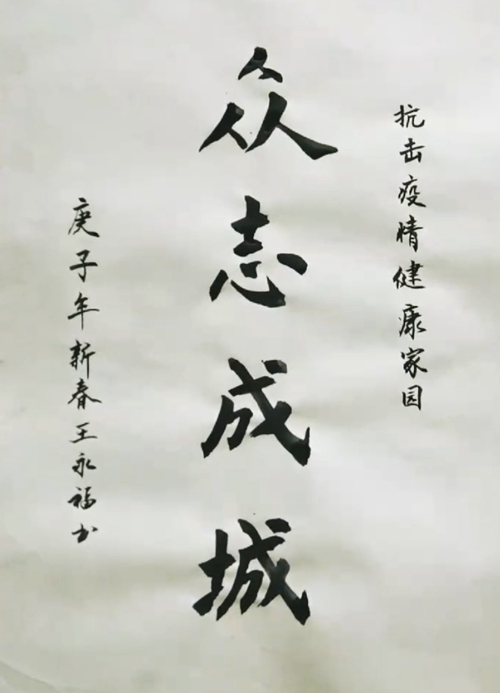 抗击疫情健康家园
众志成城
庚子年新春王永福书